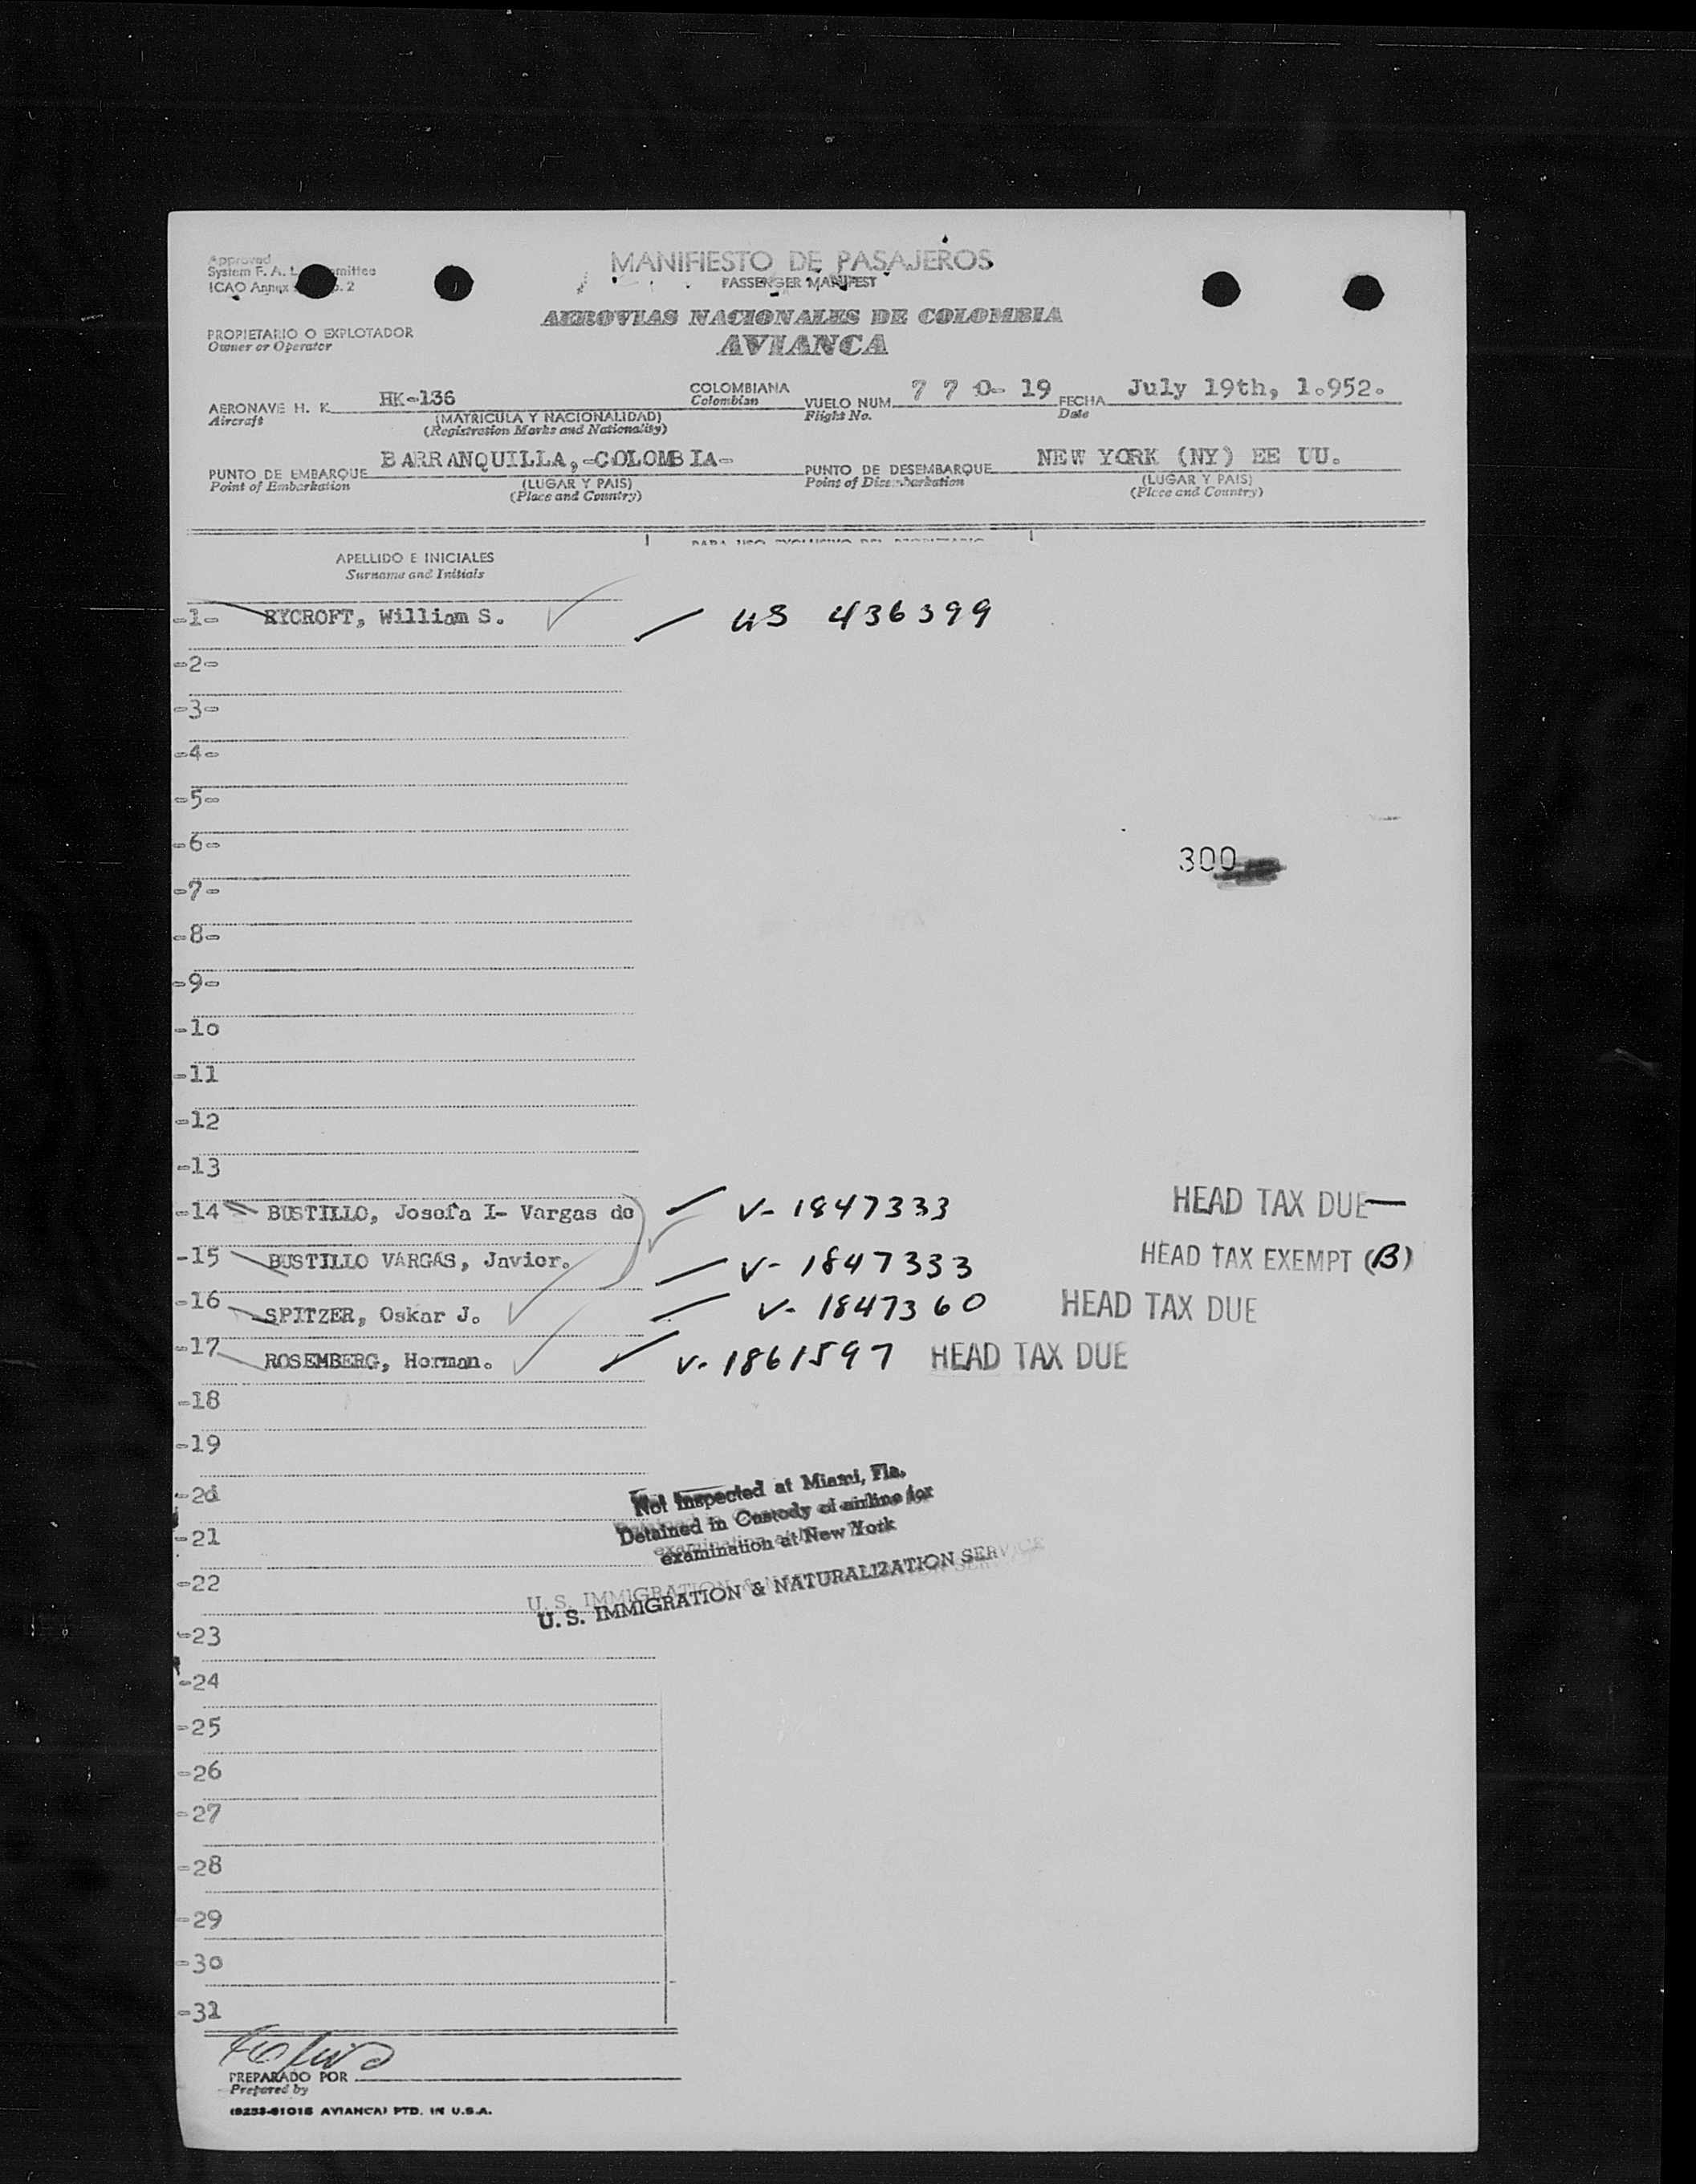 Approved
System F. A. L. mmittee
ICAO Annex . 2
MANIFIESTO DE PASAJEROS
PASSENGER MANIFEST
AEROVIAS NACIONALES DE COLOMBIA
AVIANCA
PROPIETARIO O EXPLOTADOR
Owner or Operator
AERONAVE H. K. HK-136 COLOMBIANA VUELO NUM. 7 7 0- 19 FECHA July 19th, 1.952.
Aircraft (MATRICULA Y NACIONALIDAD) Colombian Flight No. Date
(Registration Marks and Nationality)
PUNTO DE EMBARQUE BARRANQUILLA,-COLOMBIA- PUNTO DE DESEMBARQUE NEW YORK (NY) EE UU.
Point of Embarkation (LUGAR Y PAIS) Point of Disembarkation (LUGAR Y PAIS)
(Place and Country) (Place and Country)
PARA USO EXCLUSIVO DEL
APELLIDO E INICIALES
Surname and Initials
-1- RYCROFT, William S. US 436399
-2-
-3-
-4-
-5-
-6-
300
-7-
-8-
-9-
-10
-11
-12
-13
-14 BUSTILLO, Josefa I- Vargas de V- 1847333 HEAD TAX DUE
-15 BUSTILLO VARGAS, Javier. V- 1847333 HEAD TAX EXEMPT (B)
-16 SPITZER, Oskar J. V- 1847360 HEAD TAX DUE
-17 ROSEMBERG, Herman. V- 1861597 HEAD TAX DUE
-18
-19
-20
Not Inspected at Miami, Fla.
Detained in Custody of airline for
examination at New York
U. S. IMMIGRATION & NATURALIZATION SERVICE
-21
-22
-23
-24
-25
-26
-27
-28
-29
-30
-31
PREPARADO POR
Prepared by
AVIANCA) PTD. IN U.S.A.